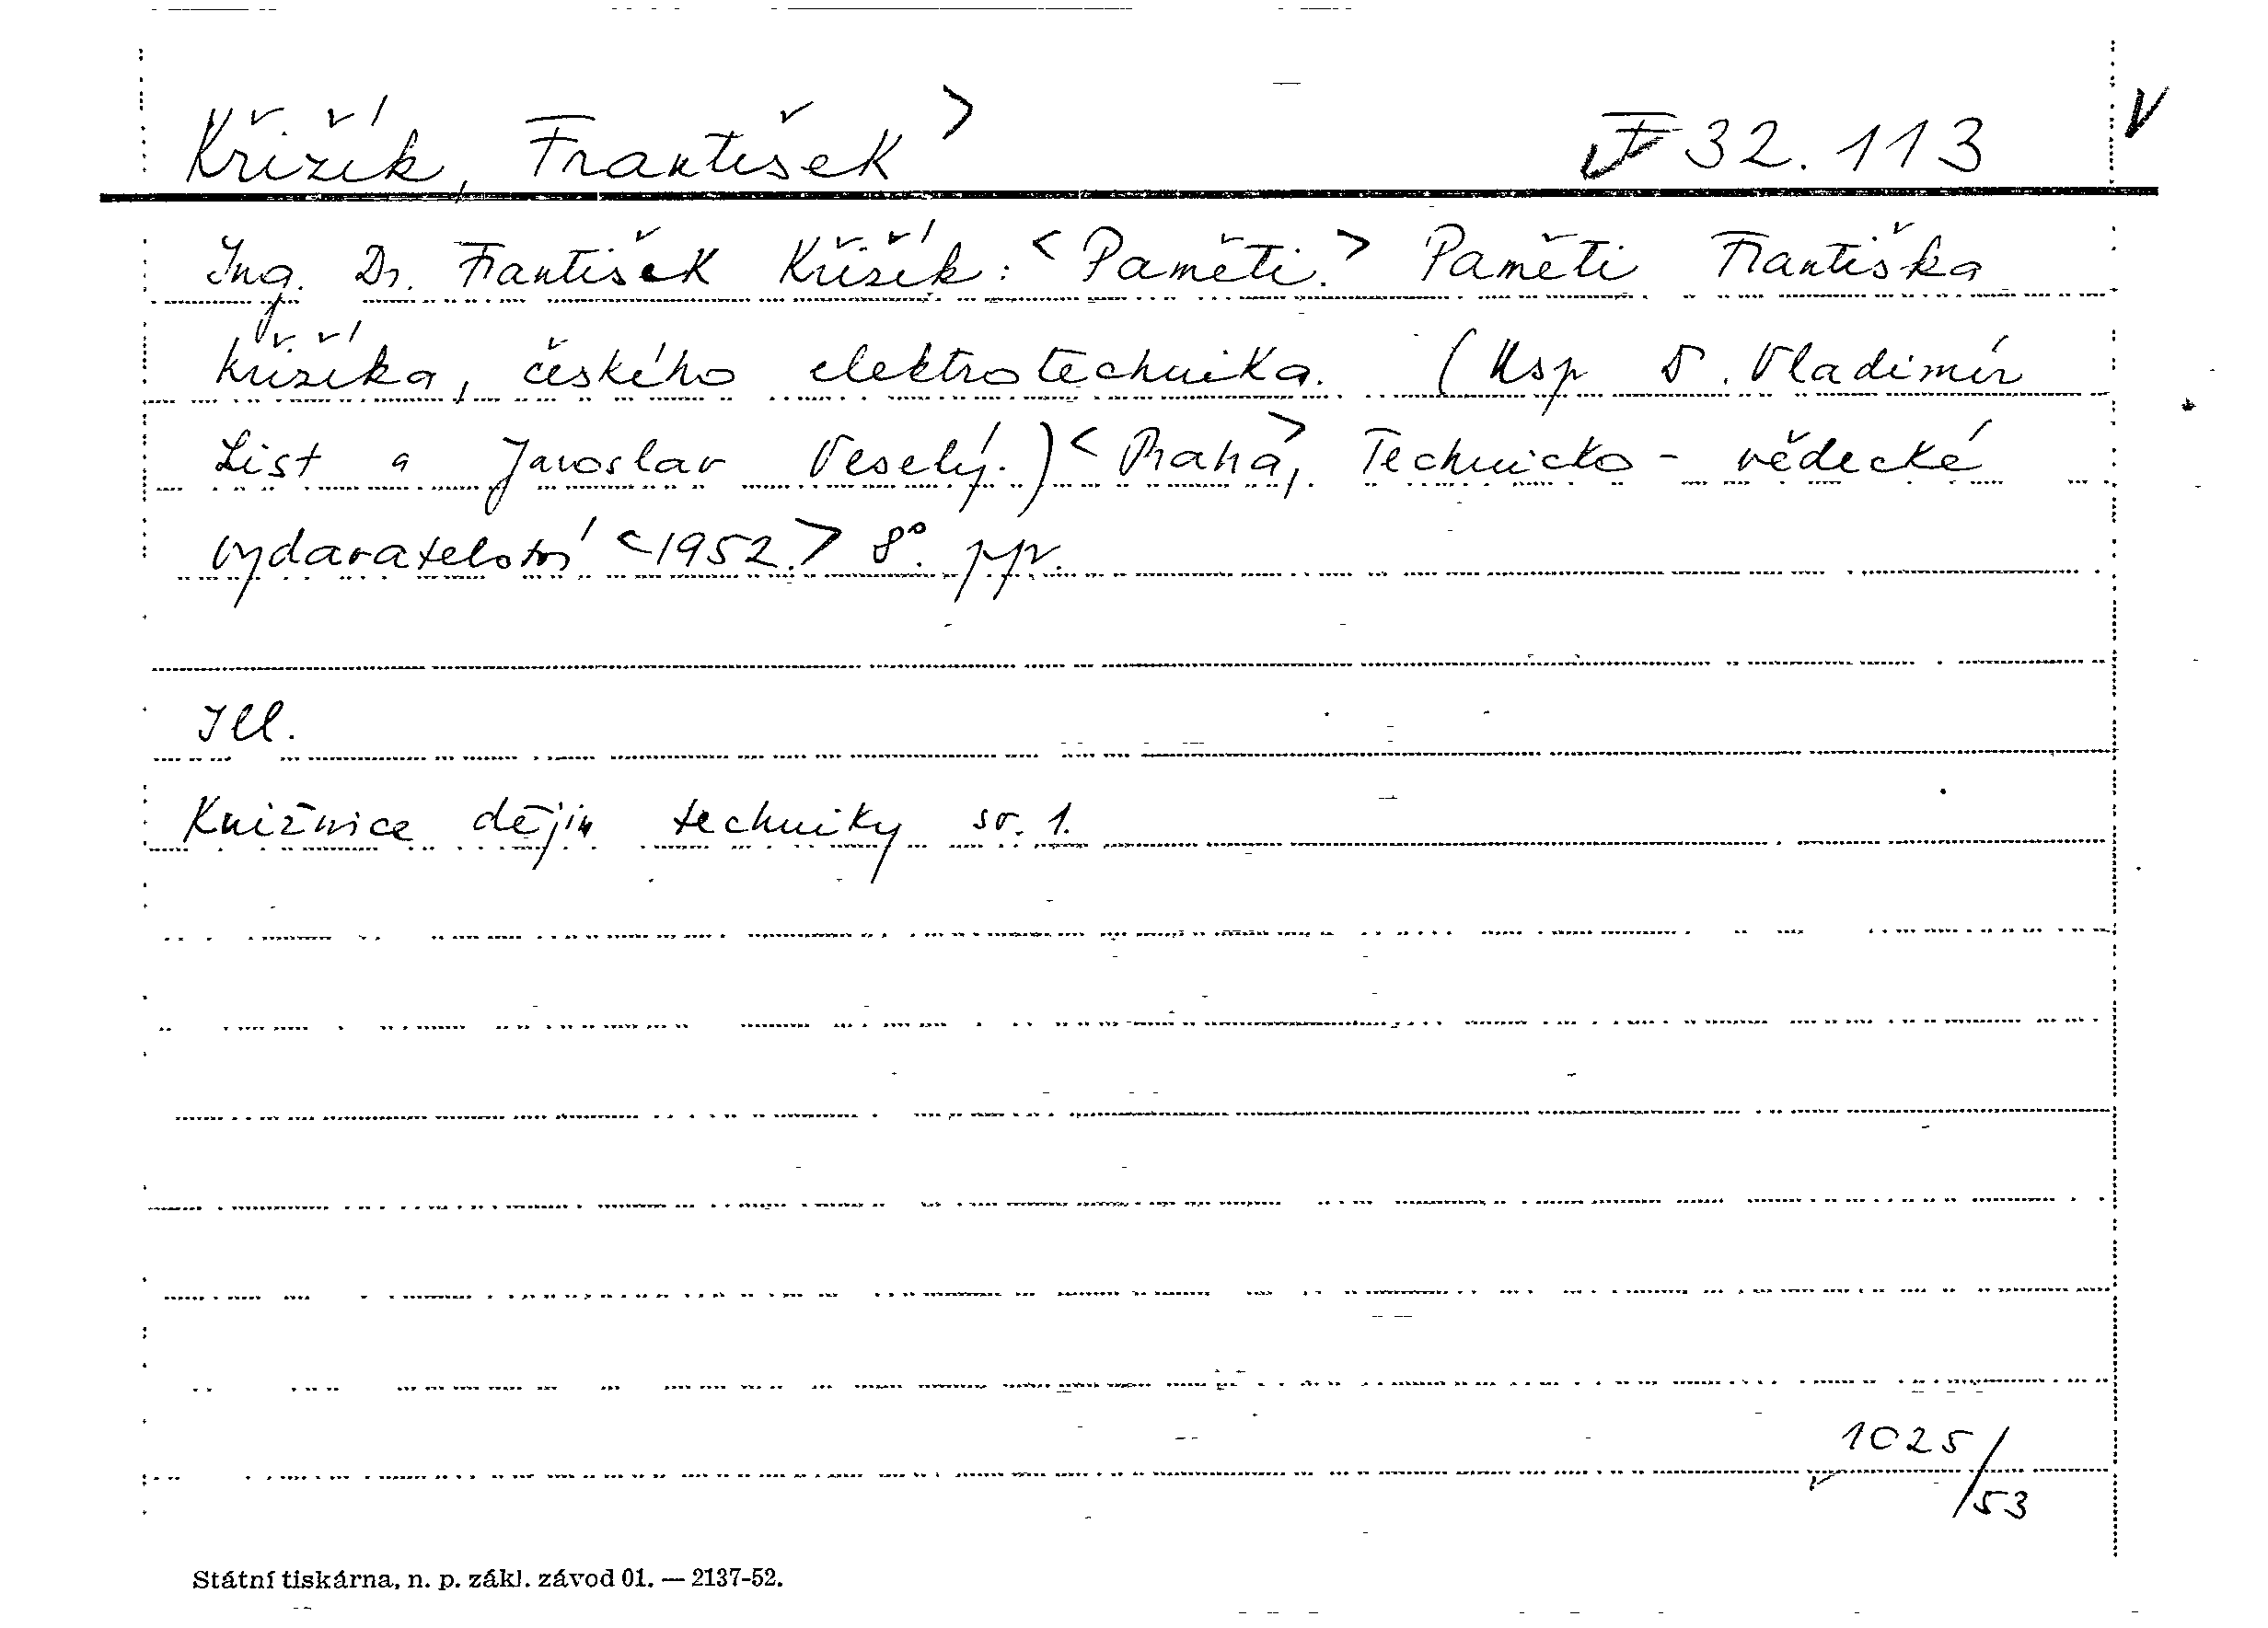 Křižík, František > F 32.113 V
Ing. Dr. František Křižík: <Paměti.> Paměti Františka
Křižíka, českého elektrotechnika. (Usp. Vladimír
List a Jaroslav Veselý.) <Praha>, Technicko-vědecké
vydavatelství <1952.> 8°.
Ill.
Knižnice dějin techniky sv. 1.
1025/53
Státní tiskárna, n. p. zákl. závod 01. — 2137-52.